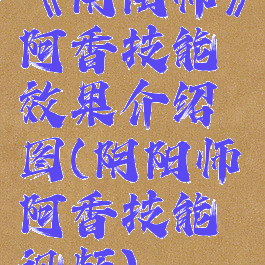 《阴阳师》
阿香技能
效果介绍
图(阴阳师
阿香技能
视频)